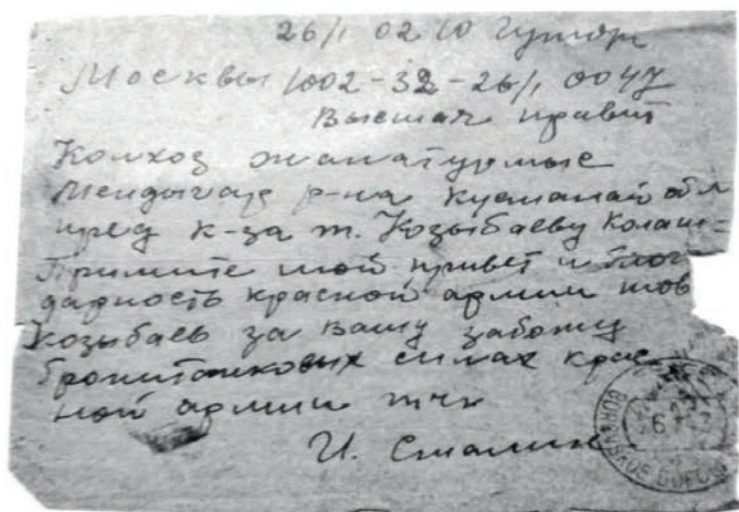 26/1 02 10
Москвы 1002-32-26/1 0047
Высшая правит
Колхоз жанатурмыс
Мендыгар р-на Кустанай обл
пред к-за т. Козыбаеву Колаш=
Примите мой привет и благ
дарность красной армии тов
Козыбаев за вашу заботу
бронитанковых силах крас
ной армии тчк
И. Сталин